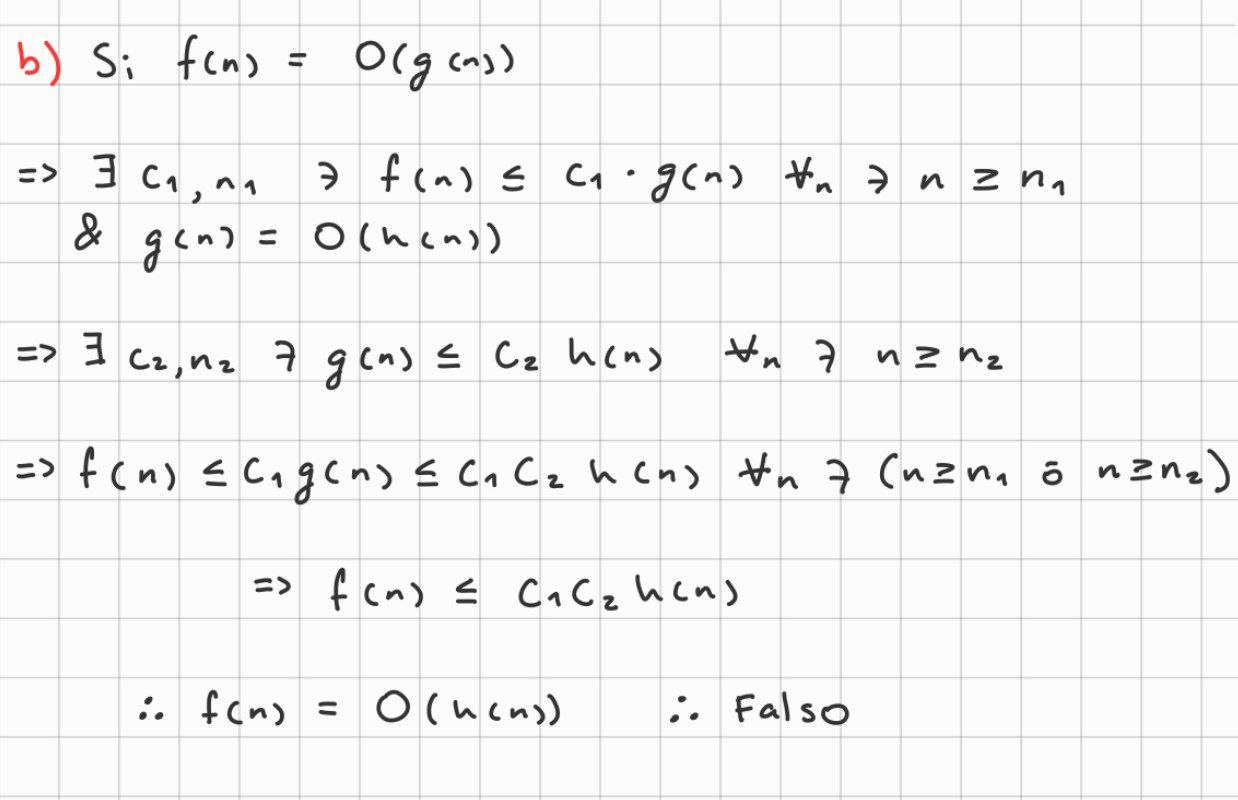 b) Si f(n) = O(g(n))
=> ∃ c₁, n₁ ∋ f(n) ≤ c₁ · g(n) ∀n ∋ n ≥ n₁
& g(n) = O(h(n))
=> ∃ c₂, n₂ ∋ g(n) ≤ c₂ h(n) ∀n ∋ n ≥ n₂
=> f(n) ≤ c₁ g(n) ≤ c₁ c₂ h(n) ∀n ∋ (n ≥ n₁ ō n ≥ n₂)
=> f(n) ≤ c₁ c₂ h(n)
∴ f(n) = O(h(n)) ∴ Falso